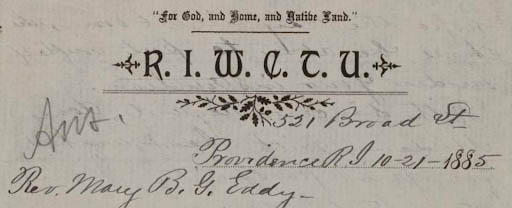 "For God, and Home, and Native Land."
R. I. W. C. T. U.
Ans.
521 Broad St
Providence R I 10-21-1885
Rev. Mary B. G. Eddy-